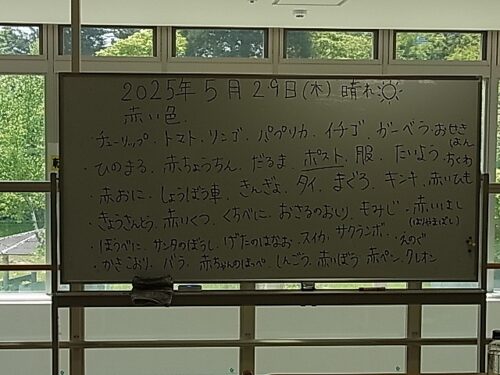 2025年5月29日(木) 晴れ
赤い色
・チューリップ・トマト・リンゴ・パプリカ・イチゴ・ガーベラ・おせきはん
・ひのまる・赤ちょうちん・だるま・ポスト・服・たいよう・ちくわ
赤おに・しょうぼう車・きんぎょ・タイ・まぐろ・キンキ・赤いひも
・きょうさんとう・赤いくつ・くちべに・おさるのおしり・もみじ・赤いはし
(はりやまばし)
・ほうべに・サンタのぼうし・げたのはなお・スイカ・サクランボ・えのぐ
・かきこおり・バラ・赤ちゃんのほっぺ・しんごう・赤いぼう・赤ペン・クレオン